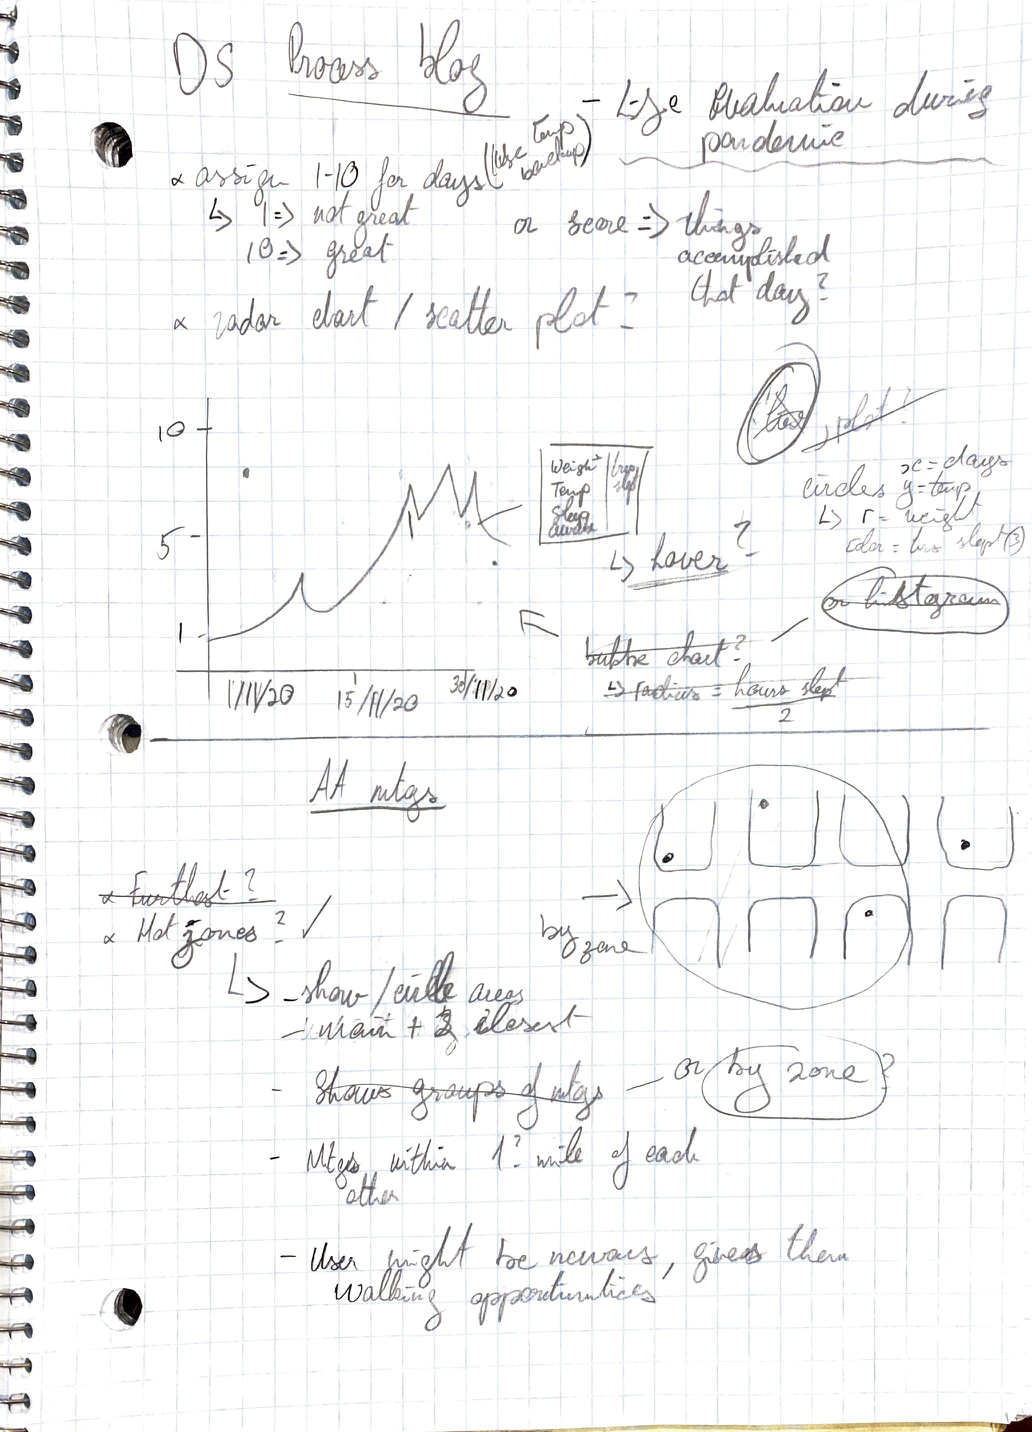 DS Process blog
- Life evaluation during
pandemic
∝ assign 1-10 for days (use temp
backup)
↳ 1 => not great
10 => great
or score => things
accomplished
that day?
∝ radar chart / scatter plot?
box plot!
10
5
1
1/11/20
15/11/20
30/11/20
Weight
Temp
Sleep
hrs
slept
↳ hover?
x = days
circles y = temp
↳ r = weight
color = hrs slept (3)
or histogram
bubble chart?
↳ radius = hours slept
2
AA mtgs
∝ Furthest?
∝ Hot zones? ✓
↳ - show / circle areas
- main + 3 closest
- Shows groups of mtgs - or by zone?
- Mtgs within 1? mile of each
other
- User might be nervous, gives them
walking opportunities
→
by
zone